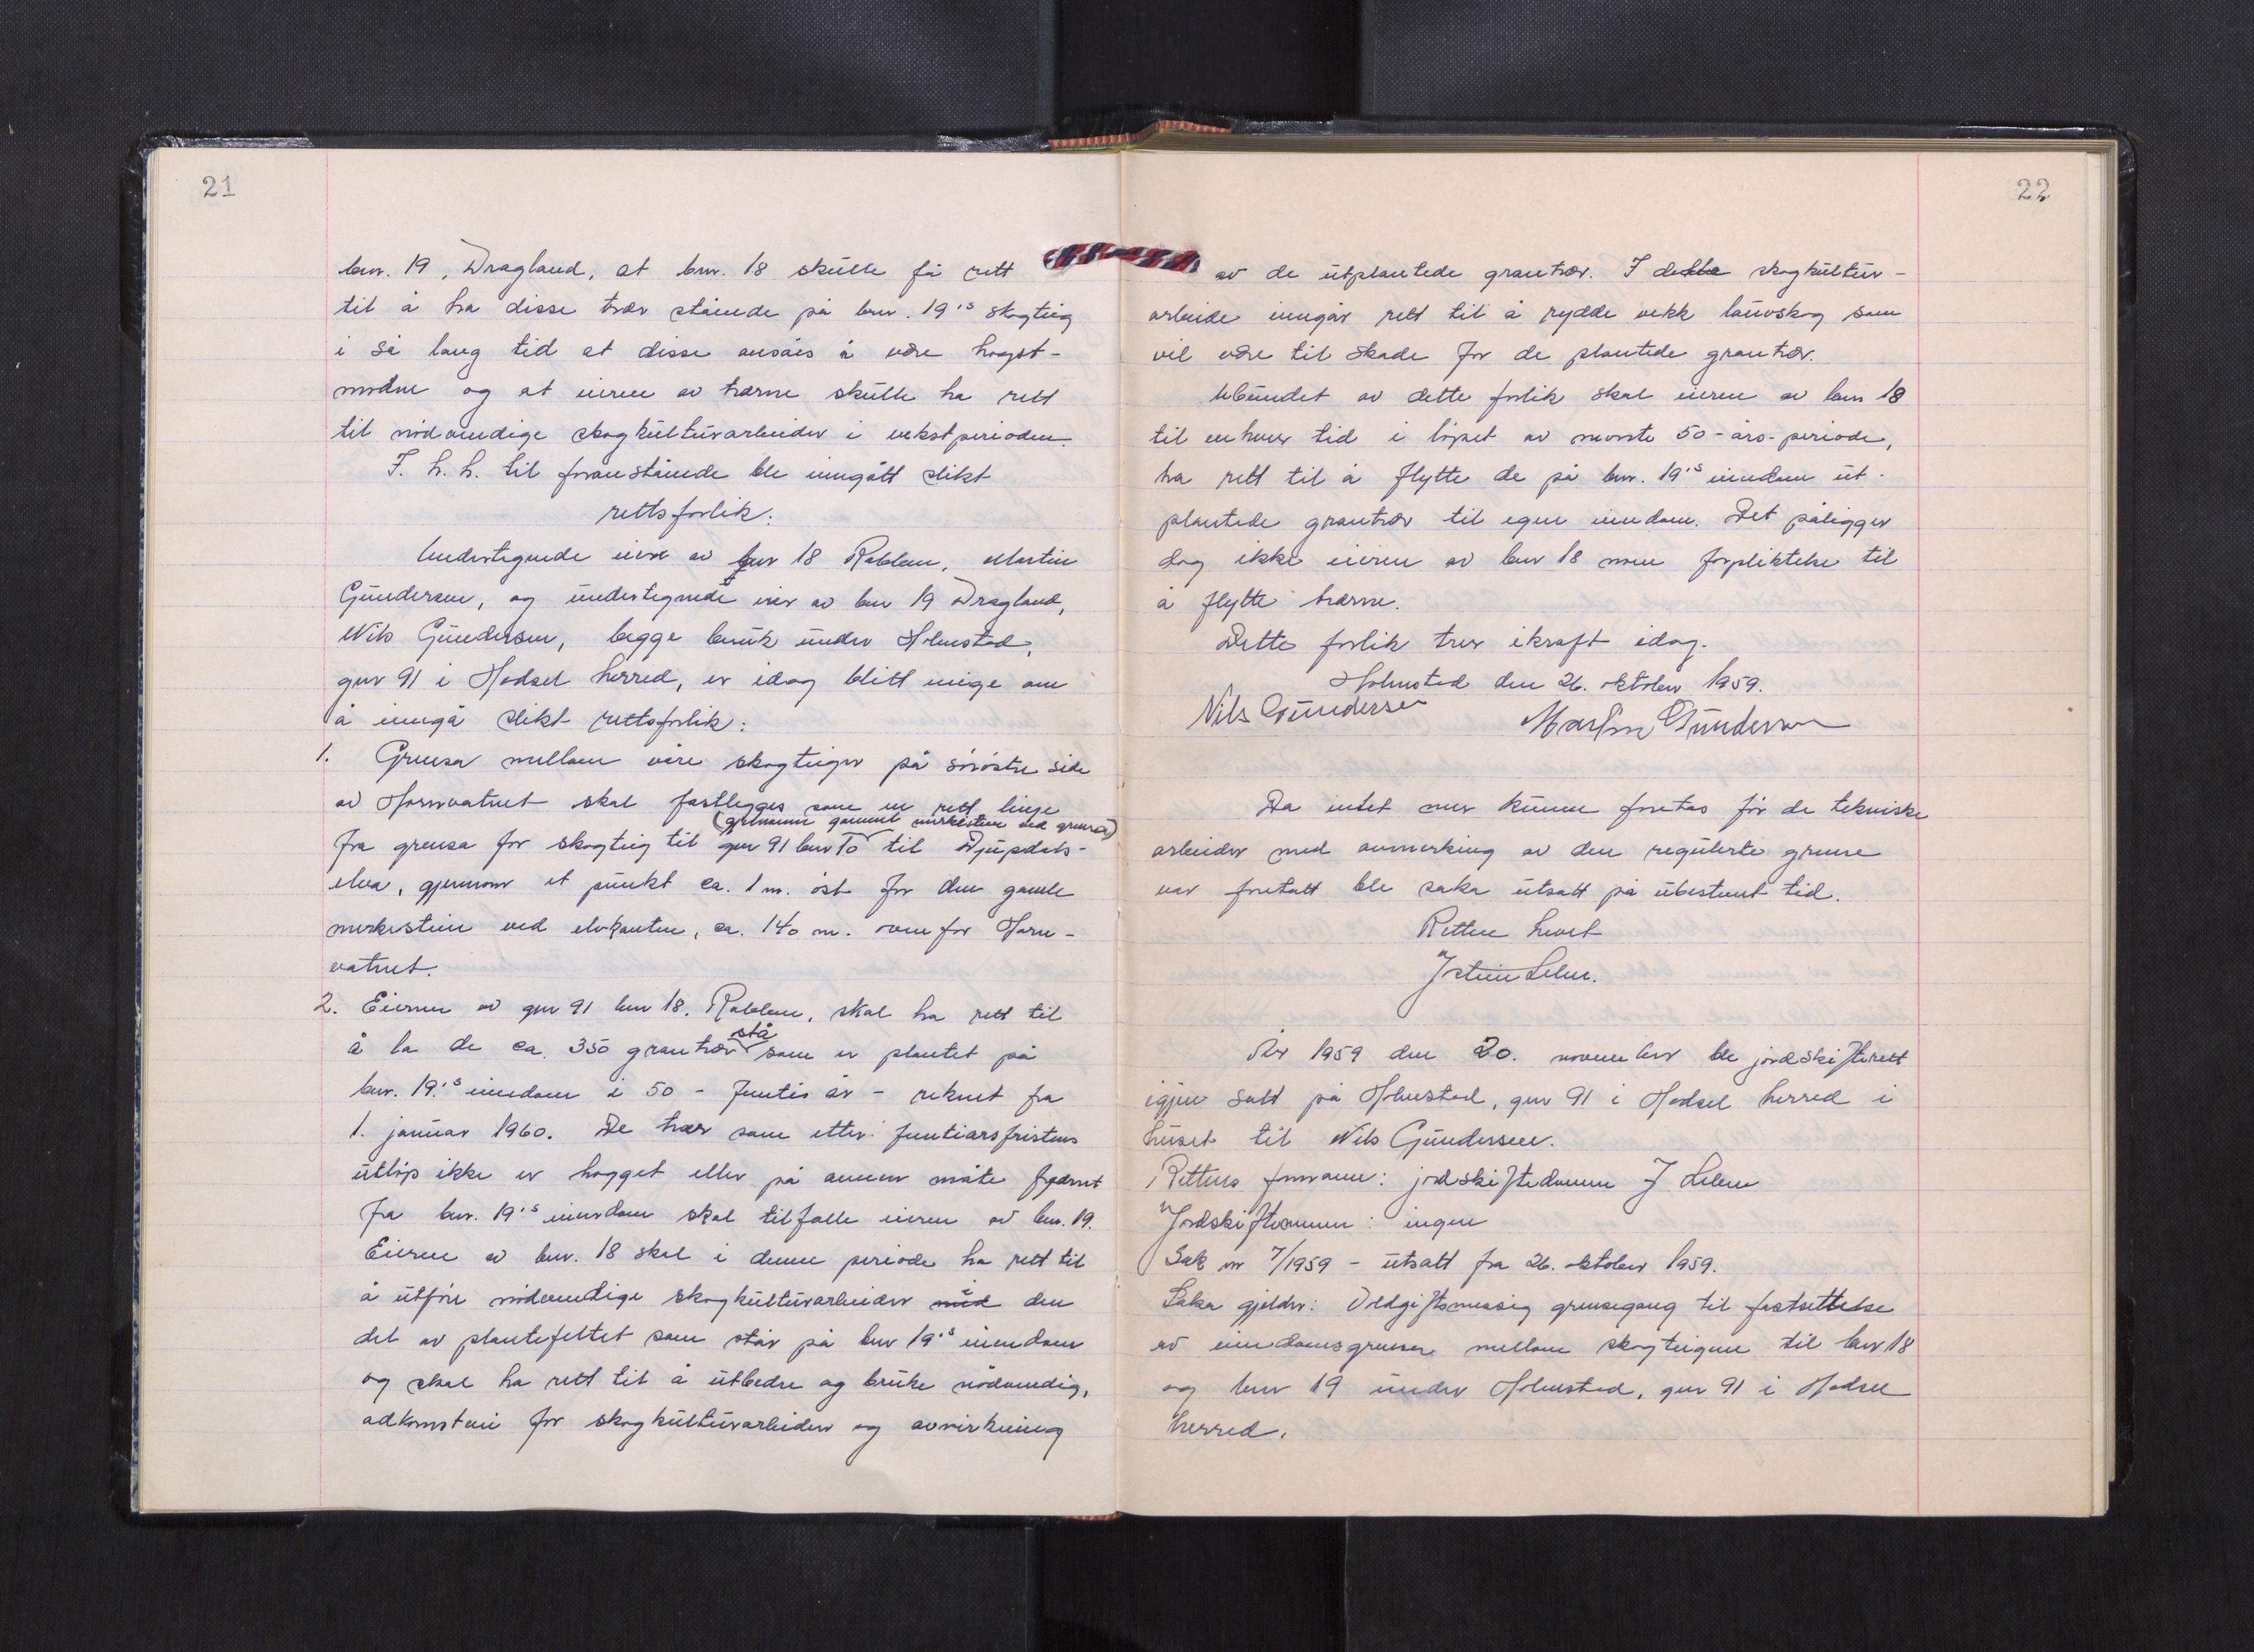 21
bnr. 19, Dragland, at bnr. 18 skulle få rett
til å ha disse trær stående på bnr. 19's skogteig
i så lang tid at disse ansåes å være hogst-
modne og at eieren av trærne skulle ha rett
til nödvendige skogkulturarbeider i vekstperioden.
I. h. h. til foranstående ble inngått slikt
rettsforlik:
Undertegnede eier av bnr 18 Rabben, Martin
Gundersen, og undertegnede eier av bnr 19 Dragland,
Nils Gundersen, begge bruk under Holmstad,
gnr 91 i Hadsel herred, er idag blitt enige om
å inngå slikt rettsforlik:
1. Grensa mellom våre skogteiger på söröstre side
av Hornvatnet skal fastlegges som en rett linje
(gjennom gammel merkestein ved grensa)
fra grensa for skogteig til gnr 91 bnr 10 til Djupdals-
elva, gjennom et punkt ca. 1 m. öst for den gamle
merkestein ved elvkanten, ca. 140 m. ovenfor Horn-
vatnet.
2. Eieren av gnr 91 bnr 18. Rabben, skal ha rett til
stå
å la de ca. 350 grantrær som er plantet på
bnr. 19's eiendom i 50 - femti år - reknet fra
1. januar 1960. De trær som etter femtiårsfristens
utlöp ikke er hogget eller på annen måte fjernet
fra bnr. 19's eiendom skal tilfalle eieren av bnr. 19.
Eieren av bnr. 18 skal i denne periode ha rett til
i
å utföre nödvendige skogkulturarbeider med den
del av plantefeltet som står på bnr 19's eiendom
og skal ha rett til å utbedre og bruke nödvendig,
adkomstvei for skogkulturarbeider og avvirkning
22
av de utplantede grantrær. I dette skogkultur-
arbeide inngår rett til å rydde vekk lauvskog som
vil være til skade for de plantede grantrær.
Ubundet av dette forlik skal eieren av bnr 18
til enhver tid i löpet av nevnte 50-års-periode,
ha rett til å flytte de på bnr. 19's eiendom ut-
plantede grantrær til egen eiendom. Det påligger
dog ikke eieren av bnr 18 noen forpliktelse til
å flytte trærne.
Dette forlik trer ikraft idag.
Holmstad den 26. oktober 1959.
Nils Gundersen
Martin Gundersen
Da intet mer kunne foretas för de tekniske
arbeider med avmerking av den regulerte grense
var foretatt ble saka utsatt på ubestemt tid.
Retten hevet
J Stein Lehn.
År 1959 den 20. november ble jordskifterett
igjen satt på Holmstad, gnr 91 i Hadsel herred i
huset til Nils Gundersen.
Rettens formann: jordskiftedommer J Lehn
Jordskiftemenn: ingen
Sak nr 7/1959 - utsatt fra 26. oktober 1959.
Saka gjelder: Voldgiftsmessig grensegang til fastsettelse
av eiendomsgrensen mellom skogteigene til bnr 18
og bnr 19 under Holmstad, gnr 91 i Hadsel
herred.